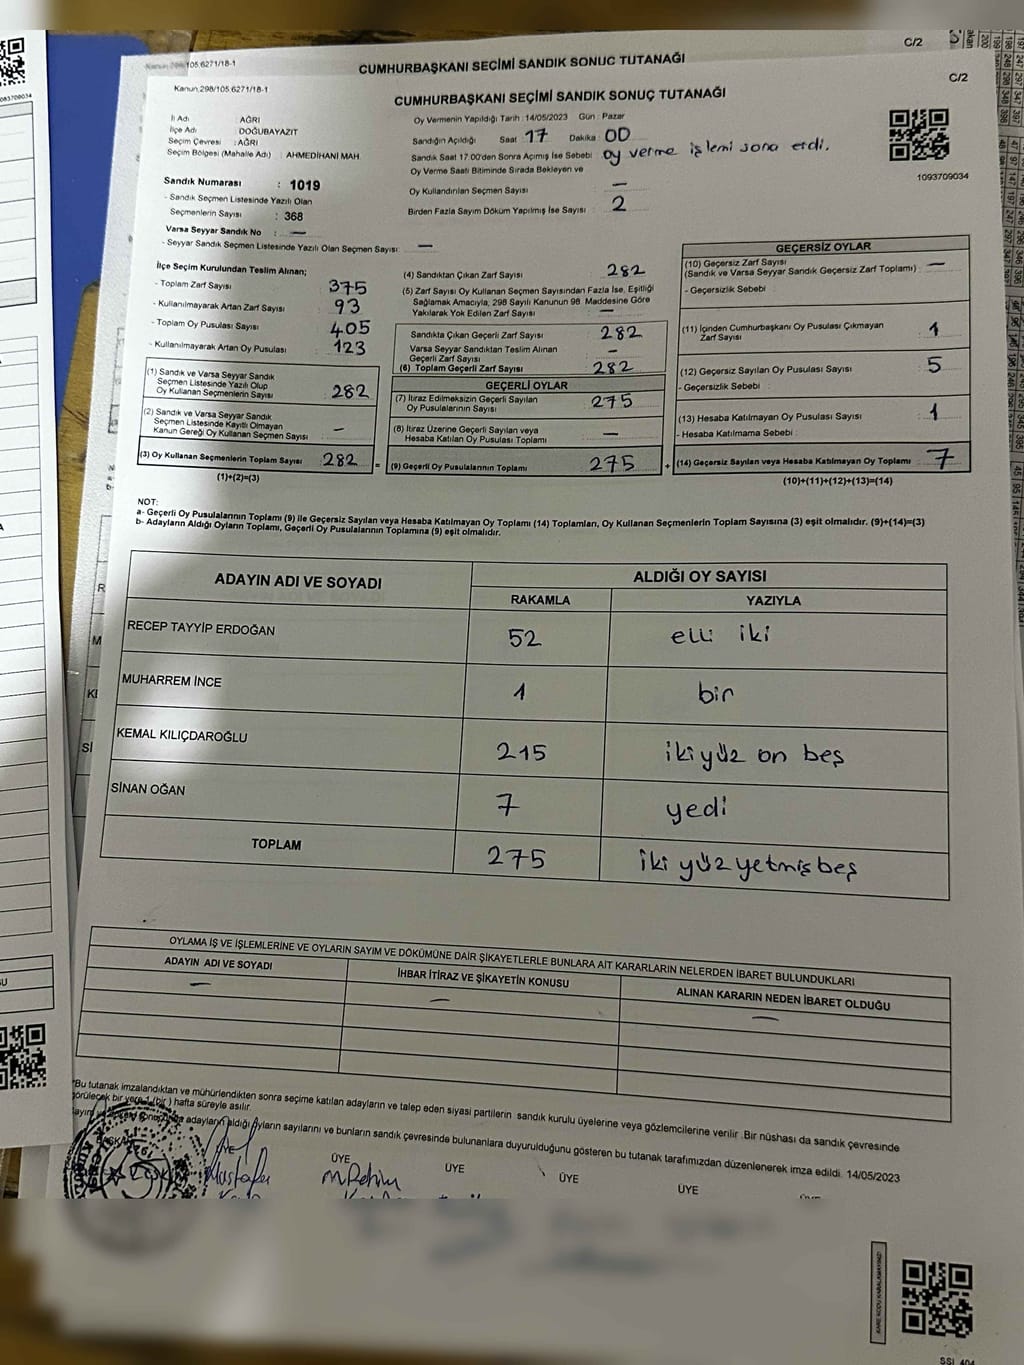 C/2
Kanun 298/105.6271/18-1
CUMHURBAŞKANI SEÇİMİ SANDIK SONUÇ TUTANAĞI
C/2
Kanun 298/105.6271/18-1
CUMHURBAŞKANI SEÇİMİ SANDIK SONUÇ TUTANAĞI
İl Adı : AĞRI
İlçe Adı : DOĞUBAYAZIT
Seçim Çevresi : AĞRI
Seçim Bölgesi (Mahalle Adı) : AHMEDİHANİ MAH.
Oy Vermenin Yapıldığı Tarih : 14/05/2023 Gün : Pazar
Sandığın Açıldığı Saat 17 Dakika : 00
Sandık Saat 17:00'den Sonra Açımış İse Sebebi : oy verme işlemi sona erdi.
Oy Verme Saati Bitiminde Sırada Bekleyen ve
Oy Kullandırılan Seçmen Sayısı —
Birden Fazla Sayım Döküm Yapılmış İse Sayısı : 2
1093709034
Sandık Numarası : 1019
- Sandık Seçmen Listesinde Yazılı Olan
Seçmenlerin Sayısı : 368
Varsa Seyyar Sandık No : —
- Seyyar Sandık Seçmen Listesinde Yazılı Olan Seçmen Sayısı: —
İlçe Seçim Kurulundan Teslim Alınan;
- Toplam Zarf Sayısı 375
- Kullanılmayarak Artan Zarf Sayısı : 93
- Toplam Oy Pusulası Sayısı 405
- Kullanılmayarak Artan Oy Pusulası : 123
(1) Sandık ve Varsa Seyyar Sandık
Seçmen Listesinde Yazılı Olup
Oy Kullanan Seçmenlerin Sayısı 282
(2) Sandık ve Varsa Seyyar Sandık
Seçmen Listesinde Kayıtlı Olmayan
Kanun Gereği Oy Kullanan Seçmen Sayısı —
(3) Oy Kullanan Seçmenlerin Toplam Sayısı 282 =
(1)+(2)=(3)
(4) Sandıktan Çıkan Zarf Sayısı 282
(5) Zarf Sayısı Oy Kullanan Seçmen Sayısından Fazla İse, Eşitliği
Sağlamak Amacıyla, 298 Sayılı Kanunun 98. Maddesine Göre
Yakılarak Yok Edilen Zarf Sayısı —
Sandıkta Çıkan Geçerli Zarf Sayısı 282
Varsa Seyyar Sandıktan Teslim Alınan
Geçerli Zarf Sayısı —
(6) Toplam Geçerli Zarf Sayısı 282
GEÇERLİ OYLAR
(7) İtiraz Edilmeksizin Geçerli Sayılan
Oy Pusulalarının Sayısı 275
(8) İtiraz Üzerine Geçerli Sayılan veya
Hesaba Katılan Oy Pusulası Toplamı —
(9) Geçerli Oy Pusulalarının Toplamı 275 +
GEÇERSİZ OYLAR
(10) Geçersiz Zarf Sayısı —
(Sandık ve Varsa Seyyar Sandık Geçersiz Zarf Toplamı) :
- Geçersizlik Sebebi :
(11) İçinden Cumhurbaşkanı Oy Pusulası Çıkmayan
Zarf Sayısı 1
(12) Geçersiz Sayılan Oy Pusulası Sayısı 5
- Geçersizlik Sebebi :
(13) Hesaba Katılmayan Oy Pusulası Sayısı 1
- Hesaba Katılmama Sebebi :
(14) Geçersiz Sayılan veya Hesaba Katılmayan Oy Toplamı 7
(10)+(11)+(12)+(13)=(14)
NOT:
a- Geçerli Oy Pusulalarının Toplamı (9) ile Geçersiz Sayılan veya Hesaba Katılmayan Oy Toplamı (14) Toplamları, Oy Kullanan Seçmenlerin Toplam Sayısına (3) eşit olmalıdır. (9)+(14)=(3)
b- Adayların Aldığı Oyların Toplamı, Geçerli Oy Pusulalarının Toplamına (9) eşit olmalıdır.
ADAYIN ADI VE SOYADI ALDIĞI OY SAYISI
RAKAMLA YAZIYLA
RECEP TAYYİP ERDOĞAN 52 elli iki
MUHARREM İNCE 1 bir
KEMAL KILIÇDAROĞLU 215 iki yüz on beş
SİNAN OĞAN 7 yedi
TOPLAM 275 iki yüz yetmiş beş
OYLAMA İŞ VE İŞLEMLERİNE VE OYLARIN SAYIM VE DÖKÜMÜNE DAİR ŞİKAYETLERLE BUNLARA AİT KARARLARIN NELERDEN İBARET BULUNDUKLARI
ADAYIN ADI VE SOYADI İHBAR İTİRAZ VE ŞİKAYETİN KONUSU ALINAN KARARIN NEDEN İBARET OLDUĞU
— — —
*Bu tutanak imzalandıktan ve mühürlendikten sonra seçime katılan adayların ve talep eden siyasi partilerin sandık kurulu üyelerine veya gözlemcilerine verilir. Bir nüshası da sandık çevresinde
görülecek bir yere 1 (bir) hafta süreyle asılır.
adayların aldığı oyların sayılarını ve bunların sandık çevresinde bulunanlara duyurulduğunu gösteren bu tutanak tarafımızdan düzenlenerek imza edildi. 14/05/2023
BAŞKAN ÜYE ÜYE ÜYE ÜYE ÜYE
Mustafa M.Rahim